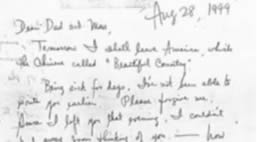 Aug 28, 1999
Dear Dad and Mom,
Tomorrow I shall leave America, which
the Chinese called "Beautiful Country"
Being sick for days, I've not been able to
write you earlier. Please forgive me.
Since I left you that evening, I couldn't
thinking of you — how